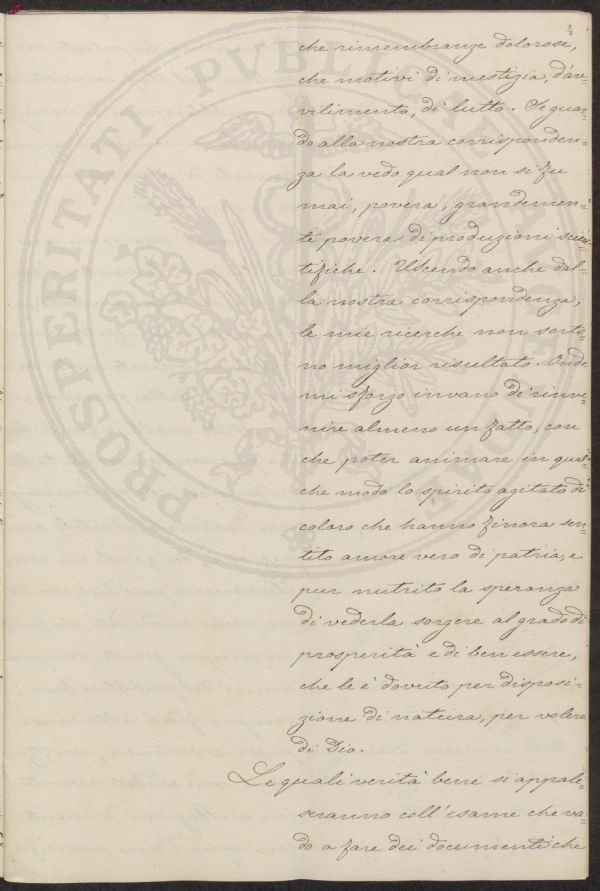 4
che rimembranze dolorose,
che motivi di mestizia, d'av=
vilimento, di lutto. Se guar=
do alla nostra corrisponden=
za la vedo qual non si fu
mai, povera, grandemen=
te povera di produzioni scien=
tifiche. Uscendo anche dal=
la nostra corrispondenza,
le mie ricerche non sorto=
no miglior risultato. Onde
mi sforzo invano di rinve=
nire almeno un fatto, con
che poter animare in qual=
che modo lo spirito agitato di
coloro che hanno finora sen=
tito amore vero di patria, e
pur nutrito la speranza
di vederla sorgere al grado di
prosperità e di ben essere,
che le è dovuto per disposi=
zione di natura, per volere
di Dio.
Le quali verità bene si appale=
seranno coll'esame che va=
do a fare dei documenti che
PROSPERITATI PVBLICAE